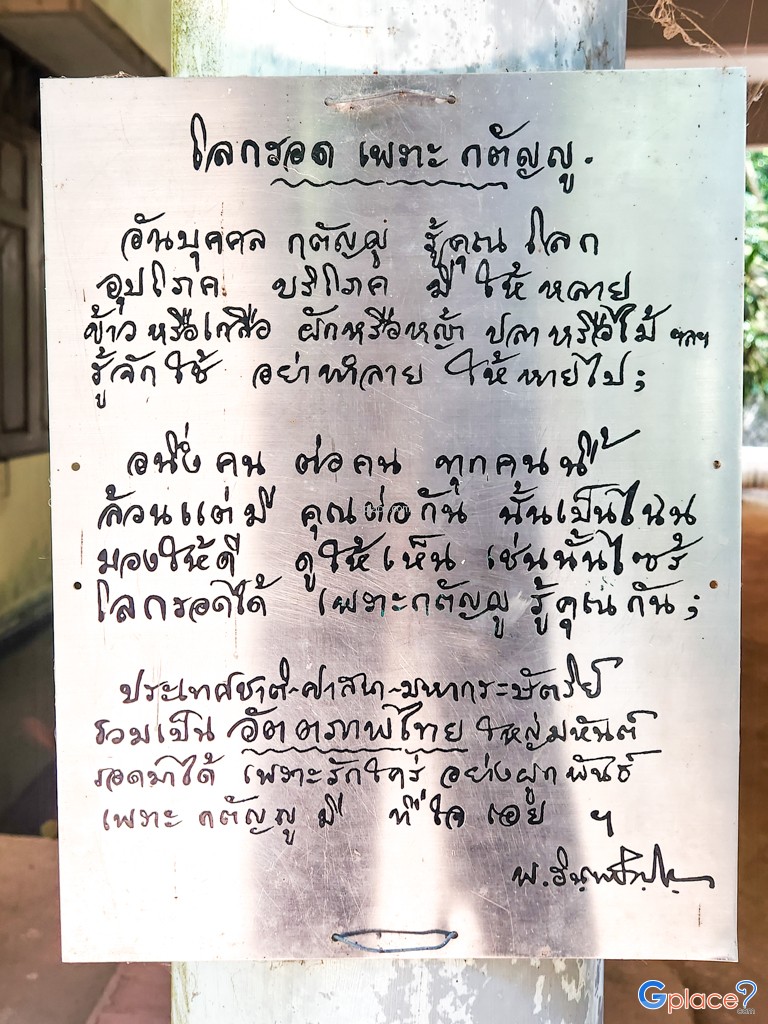 โลกรอด เพราะ กตัญญู.
อันบุคคล กตัญญู รู้คุณ โลก
อุปโภค บริโภค มี ให้ หลาย
ข้าว หรือเกลือ ผักหรือหญ้า ปลา หรือไม้ ฯลฯ
รู้จักใช้ อย่าทำลาย ให้หายไป;
อนึ่ง คน ต่อ คน ทุกคนนี้
ล้วนแต่มี คุณต่อกัน นั้นเป็นไฉน
มองให้ดี ดูให้เห็น เช่นนั้นไซร้
โลกรอดได้ เพราะกตัญญู รู้คุณกัน;
ประเทศชาติ-ศาสนา-มหากระษัตริย์
รวมเป็น อัตตภาพไทย ใหญ่มหันต์
รอดมาได้ เพราะรักใคร่ อย่างผูกพันธ์
เพราะ กตัญญู มี ที่ใจ เอย ฯ
พ. อินฺทปญฺโญ
Gplace?.com